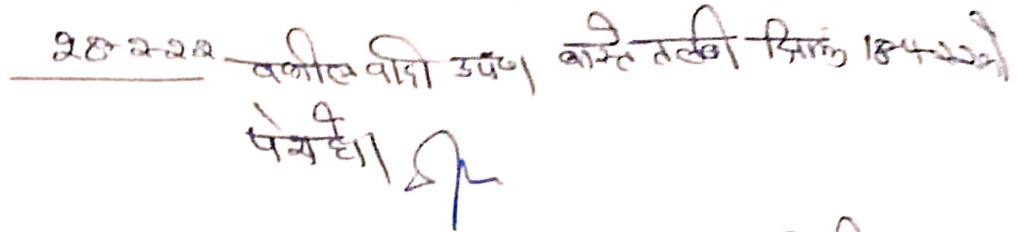 २८-२-२२ वकील वादी उप०। वास्ते तलबी दिनांक 18-4-22 को
पेश हो।